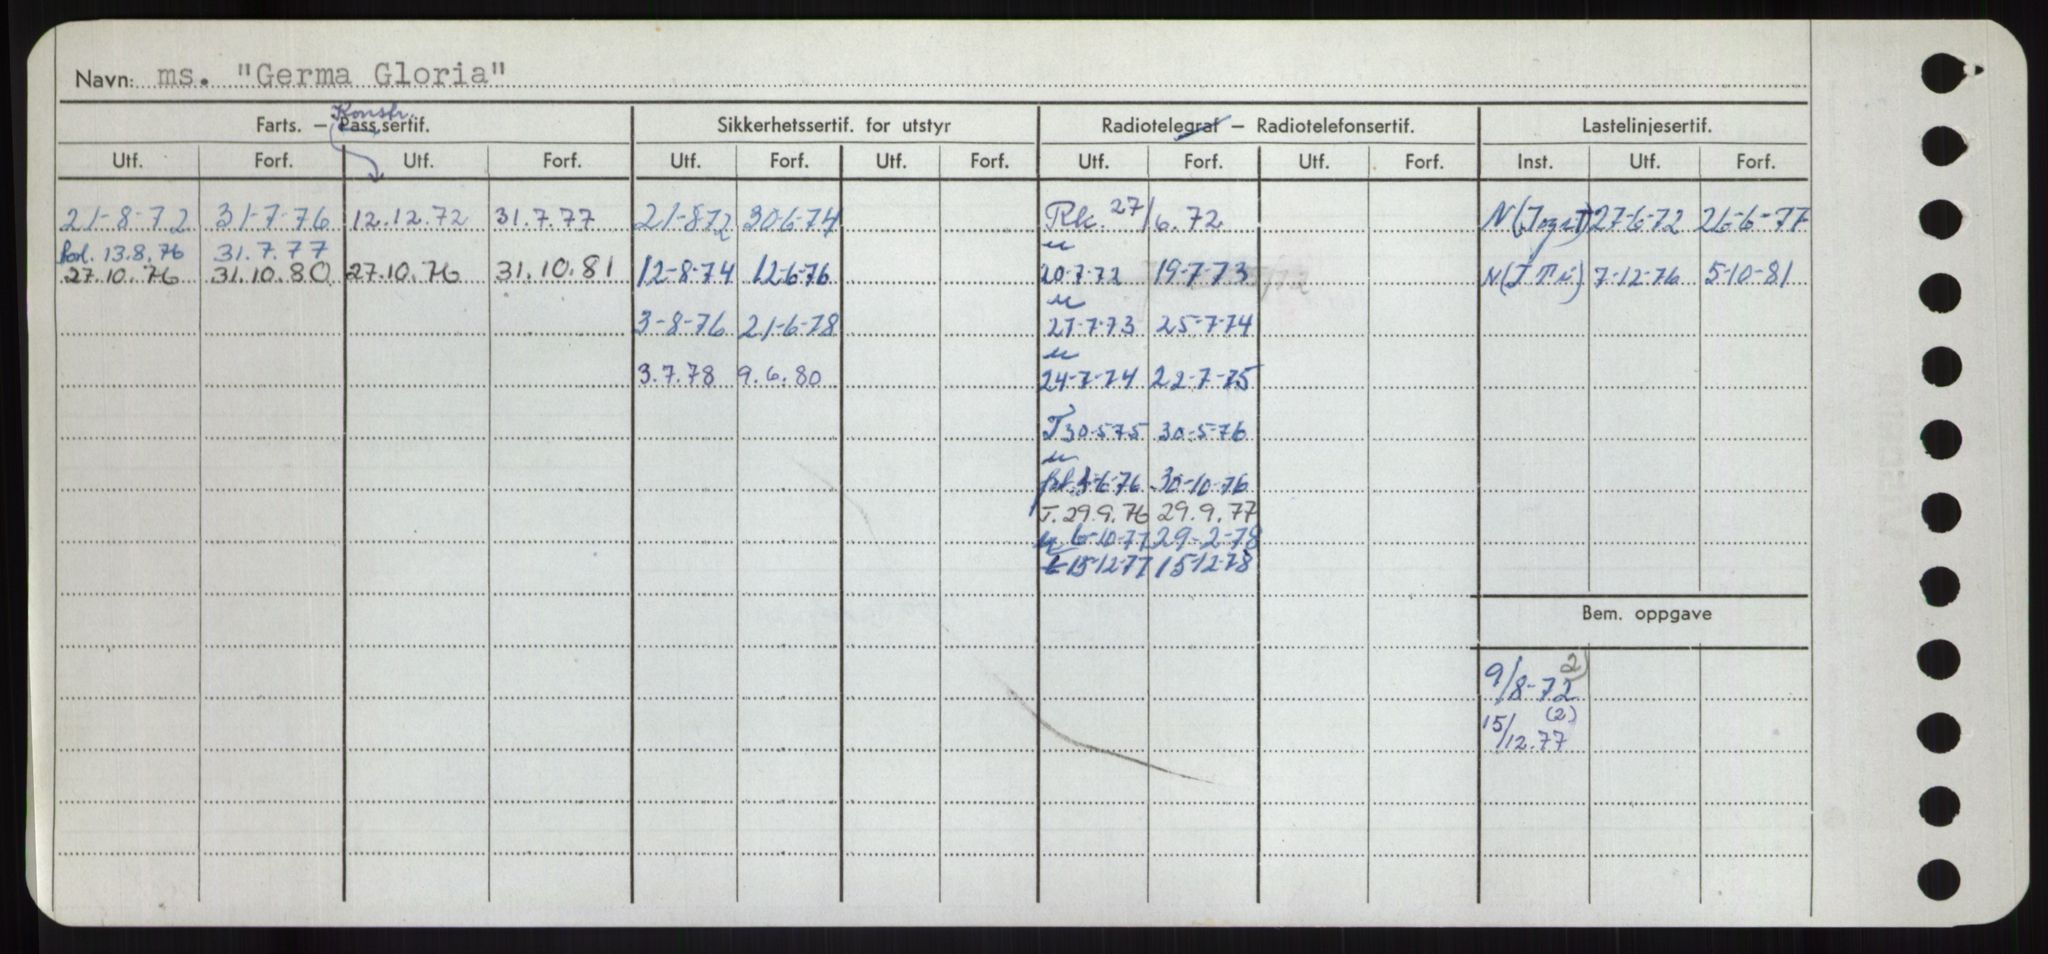 Navn: ms. "Germa Gloria"
Konstr.
Farts. — Pass.sertif. Sikkerhetssertif. for utstyr Radiotelegraf — Radiotelefonsertif. Lastelinjesertif.
Utf. Forf. Utf. Forf. Utf. Forf. Utf. Forf. Utf. Forf. Utf. Forf. Inst. Utf. Forf.
21-8-72 31-7-76 12.12.72 31.7.77 21-8-72 30-6-74 Rk. 27/6.72 N 27-6-72 26-6-77
forl. 13.8.76 31.7.77
27.10.76 31.10.80 27.10.76 31.10.81 12-8-74 12-6-76 20-7-72 19-7-73 N 7-12-76 5-10-81
3-8-76 21-6-78 27-7-73 25-7-74
3.7.78 9.6.80 24-7-74 22-7-75
T 30-5-75 30-5-76
3-6-76 30-10-76
T. 29.9.76 29.9.77
6-10-77 29-2-78
t 15-12-77 15-12-78
Bem. oppgave
9/8-72 2)
15/12.77 (2)